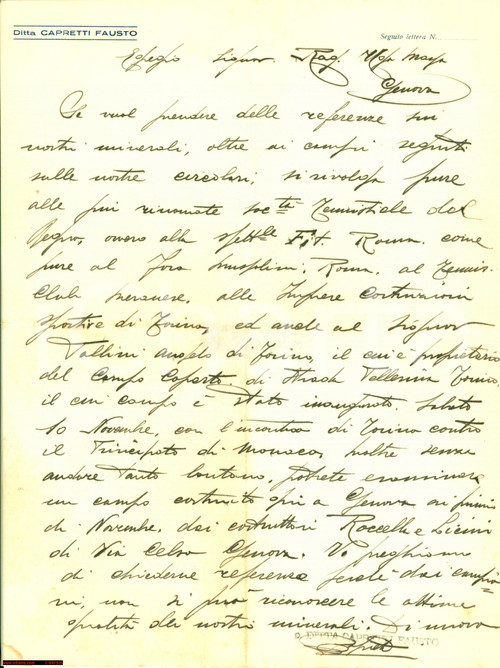 Ditta CAPRETTI FAUSTO
Seguito lettera N.
Egregio Signor Rag. Maga
Genova
Se vuol prendere delle referenze sui
nostri minerali, oltre ai campi segnati
sulle nostre circolari, si rivolga pure
alle più rinomate soctà Tennistiche del
Regno, ovvero alla spettle F.i.t. Roma, come
pure al Foro Mussolini, Roma, al Tennis
Club Meranese, alle Imprese Costruzioni
sportive di Torino, ed anche al Signor
Tallini Angelo di Torino, il cui è proprietario
del Campo Coperto di Torino,
il cui campo è stato inaugurato Sabato
10 Novembre, con l'incontro di Torino contro
il Principato di Monaco, inoltre senza
andare tanto lontano, potrete esaminare
un campo costruito a Genova ai primi
di Novembre, dai costruttori Roccella e Licini
di Via Celsa Genova. Vi preghiamo
di chiederne referenze perchè dai campio-
ni, non si può riconoscere le ottime
qualità dei nostri minerali. Di nuovo
p. DITTA CAPRETTI FAUSTO